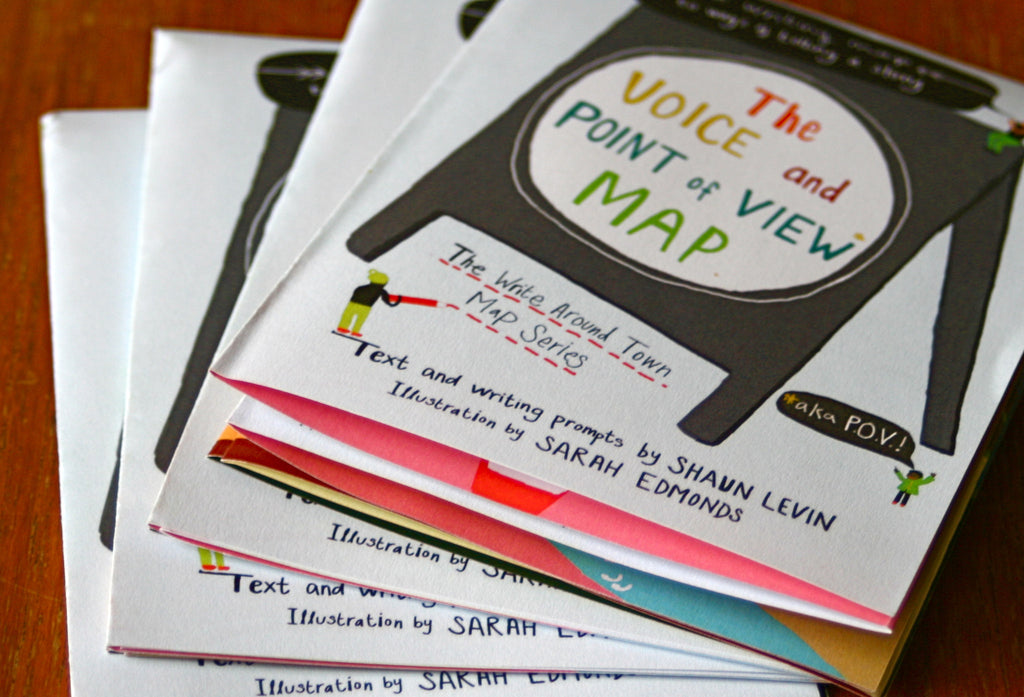 to ways of looking a story
The
VOICE and
POINT of VIEW
MAP
The Write Around Town
Map Series
Text and writing prompts by SHAUN LEVIN
Illustration by SARAH EDMONDS
*aka P.O.V.!
Illustration by SARA
Text and writing
Illustration by SARAH ED
Text
Illustration by SARAH EDMON